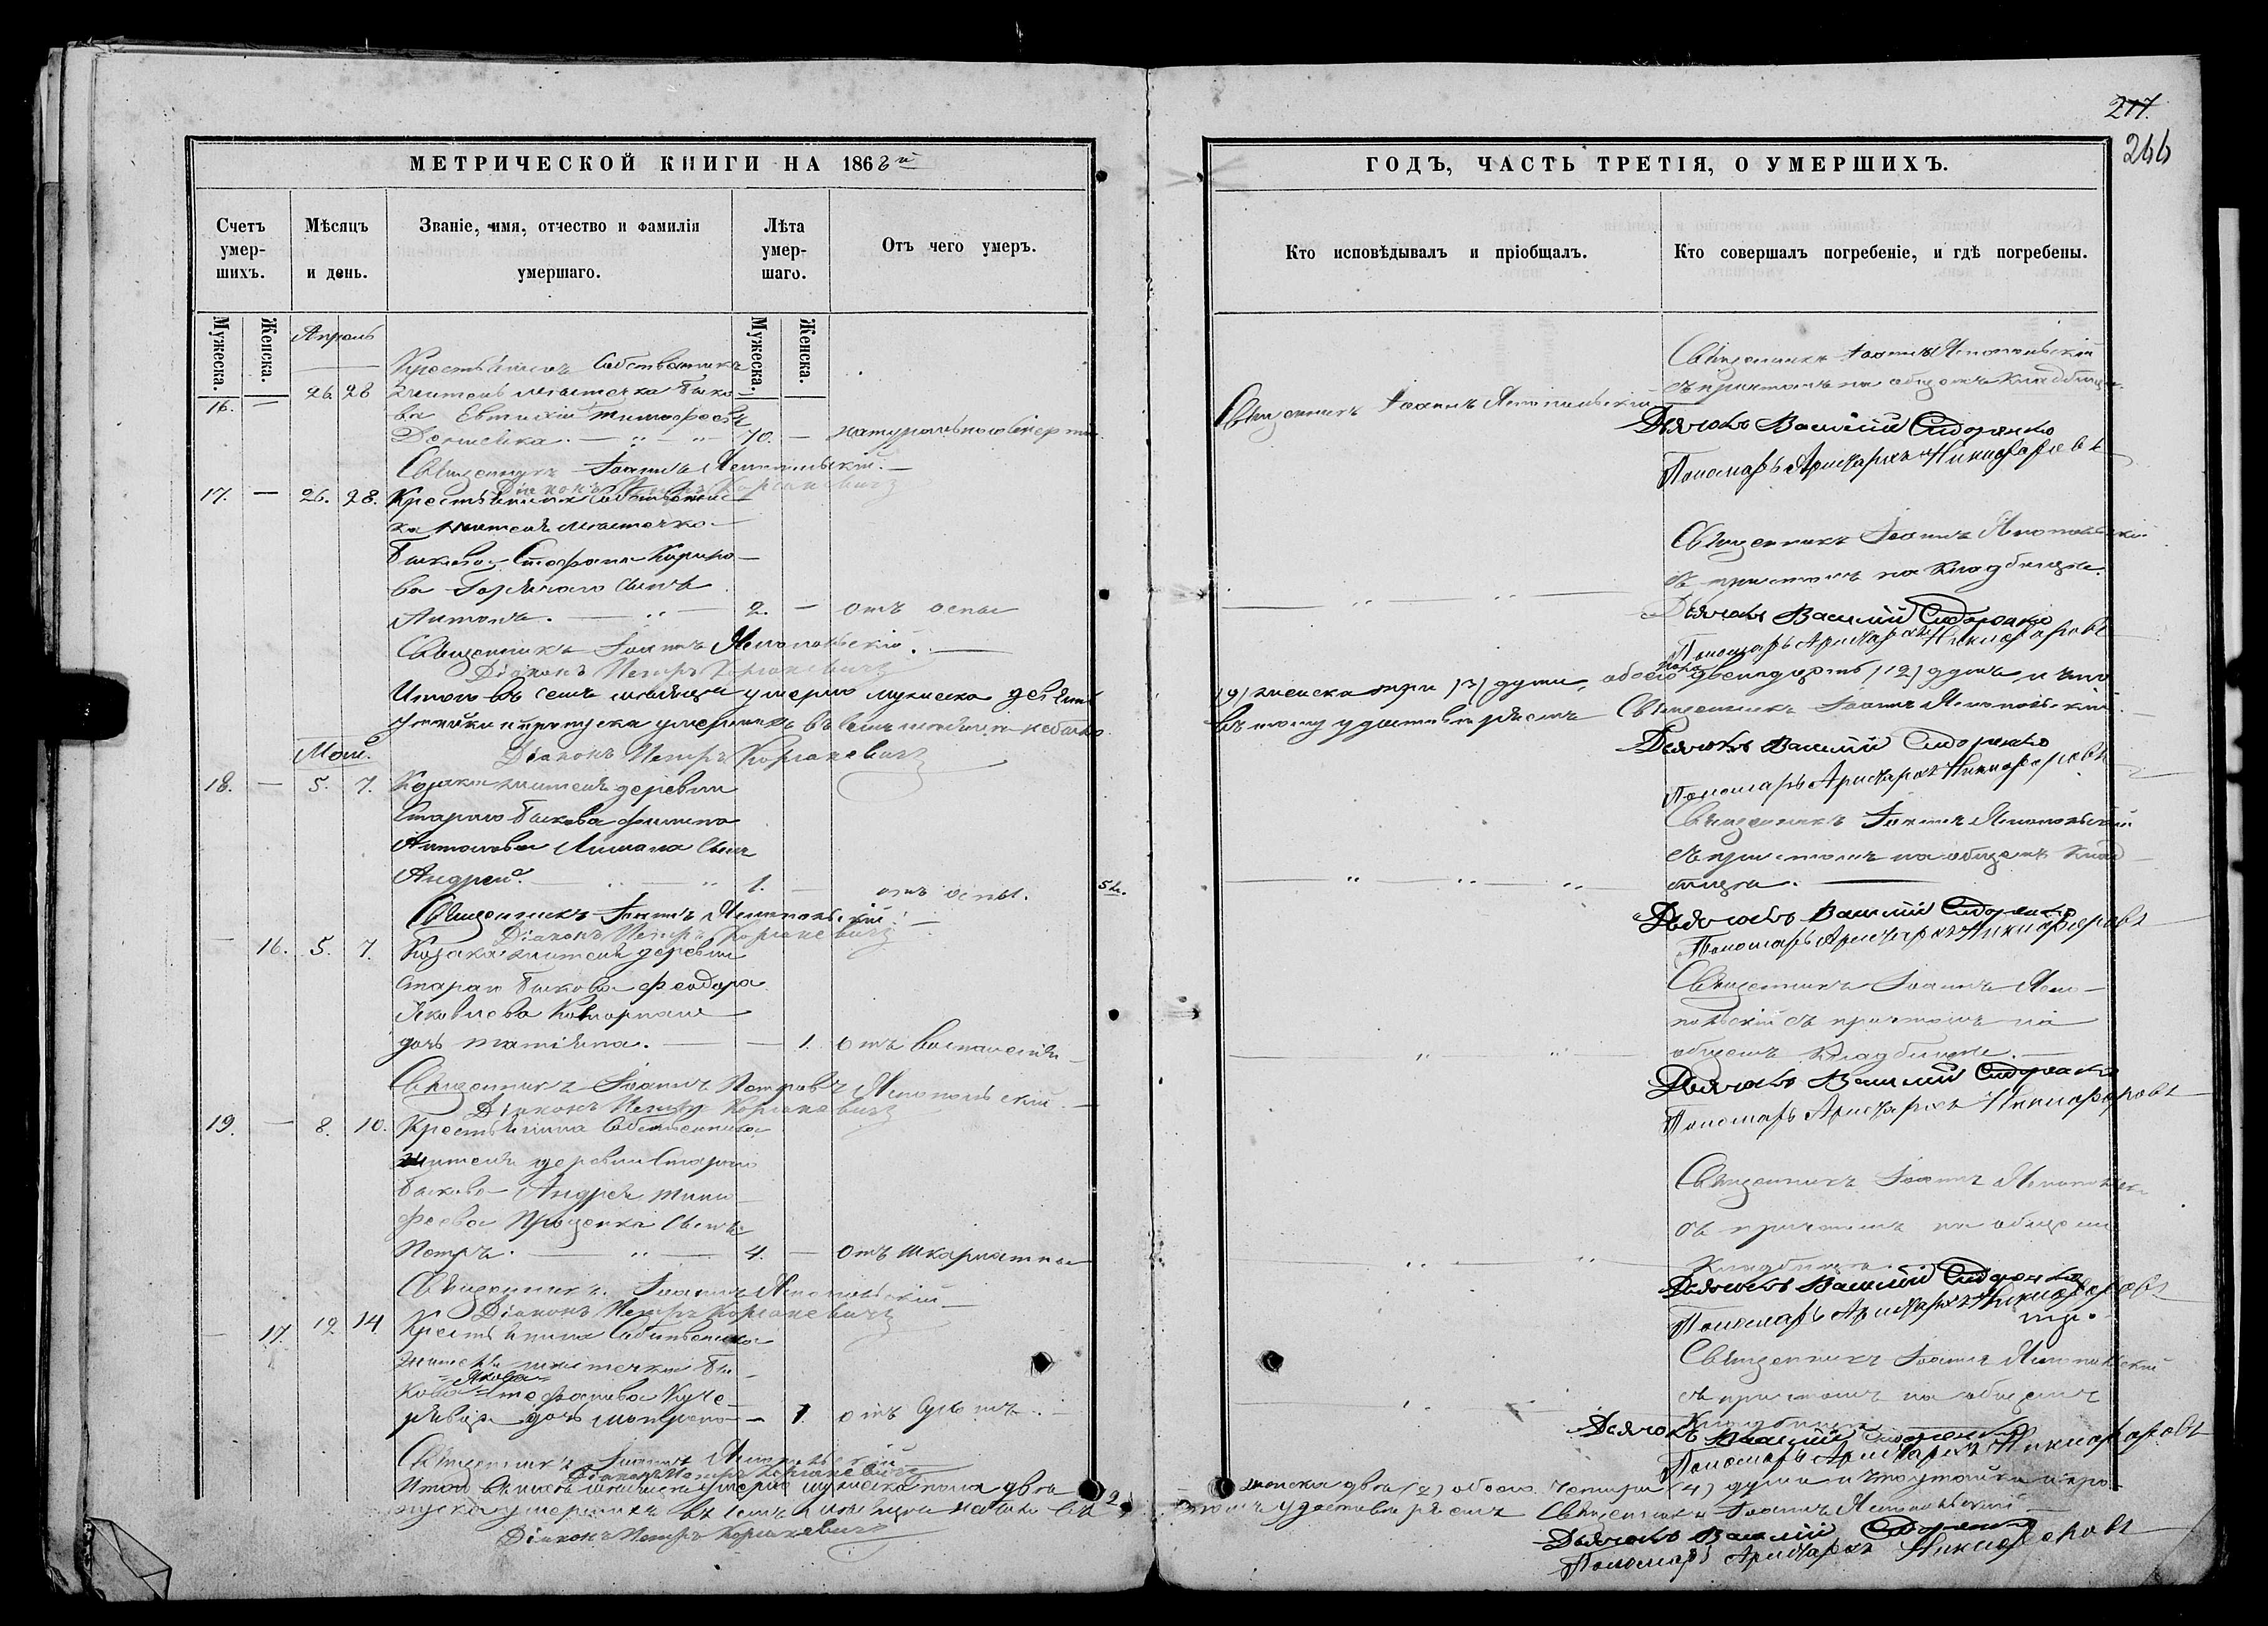 217.
266
МЕТРИЧЕСКОЙ КНИГИ НА 1868 й
Счетъ умер-шихъ.
Мѣсяцъ и день.
Званіе, имя, отчество и фамилія умершаго.
Лѣта умер-шаго.
Отъ чего умеръ.
Мужеска.
Женска.
Мужеска.
Женска.
Апрель
Крестьянинъ Собственникъ
16. — 26. 28 житель местечка Быко-
ва Евтихій Тимофеевъ
70. — натуральною смертію
Священникъ Іоаннъ Ямпольскій. —
Діаконъ Петръ Коріакевичъ
17. — 26. 28. Крестьянина Собственни-
ка жителя местечка
Быкова Стефана Кирило-
ва сынъ
Антонъ. — „ — 2. — отъ оспы
Священникъ Іоаннъ Ямпольскій. —
Діаконъ Петръ Коріакевичъ
Итого въ семъ месяце умерло мужеска девять
утайки и пропуска умершихъ въ семъ месяце не было
Діаконъ Петръ Коріакевичъ
Май.
18. — 5. 7. Козака жителя деревни
Старого Быкова Филипа
Антонова сынъ
Андрей. — „ — „ 1. — отъ оспы.
Священникъ Іоаннъ Ямпольскій. —
Діаконъ Петръ Коріакевичъ
— 16. 5. 7. Козака жителя деревни
Старого Быкова Феодора
Яковлева
дочь Татіяна. — — 1. отъ воспаленія
Священникъ Іоаннъ Петровъ Ямпольскій —
Діаконъ Петръ Коріакевичъ
19. — 8. 10. Крестьянина Собственника
жителя деревни Старого
Быкова Андрея Тимо-
феева Проценка сынъ
Петръ. — „ — 4. — отъ шкарлатины
Священникъ Іоаннъ Ямпольскій —
Діаконъ Петръ Коріакевичъ
— 17. 12 14 Крестьянина Собственника
жителя местечка Бы-
=Якова=
кова Стефанова Куче-
рявца дочь Матрона — 1. отъ
Священникъ Іоаннъ Ямпольскій
Діаконъ Петръ Коріакевичъ
Итого въ месяце умерло мужеска пола два 2,
пуска умершихъ въ семъ месяце не было въ
Діаконъ Петръ Коріакевичъ
ГОДЪ, ЧАСТЬ ТРЕТІЯ, О УМЕРШИХЪ.
Кто исповѣдывалъ и пріобщалъ.
Кто совершалъ погребеніе, и гдѣ погребены.
Священникъ Іоаннъ Ямпольскій
Священникъ Іоаннъ Ямпольскій
съ причтомъ на общемъ кладбище.
Дьячокъ Василій Сидоренко
Пономарь Аристархъ Никифоровъ
Священникъ Іоаннъ Ямпольскій
съ причтомъ на кладбище.
Дьячокъ Василій Сидоренко
Пономарь Аристархъ Никифоровъ
(9) женска три (3) души, обоего пола двенадцать (12) душъ, и что
въ томъ удостоверяемъ Священникъ Іоаннъ Ямпольскій
Дьячокъ Василій Сидоренко
Пономарь Аристархъ Никифоровъ
Священникъ Іоаннъ Ямпольскій
съ причтомъ на общемъ клад-
бище. —
Дьячокъ Василій Сидоренко
Пономарь Аристархъ Никифоровъ
Священникъ Іоаннъ Ямпо-
польскій съ причтомъ на
общемъ кладбище. —
Дьячокъ Василій Сидоренко
Пономарь Аристархъ Никифоровъ
Священникъ Іоаннъ Ямпольскій
съ причтомъ на общемъ
кладбище.
Дьячокъ Василій Сидоренко
Пономарь Аристархъ Никифоровъ
Священникъ Іоаннъ Ямпольскій
съ причтомъ на общемъ
кладбище
Дьячокъ Василій Сидоренко
Пономарь Аристархъ Никифоровъ
женска два (2) обоего четыри (4) души и что утайки и про-
томъ удостоверяемъ Священникъ Іоаннъ Ямпольскій
Дьячокъ Василій Сидоренко
Пономарь Аристархъ Никифоровъ